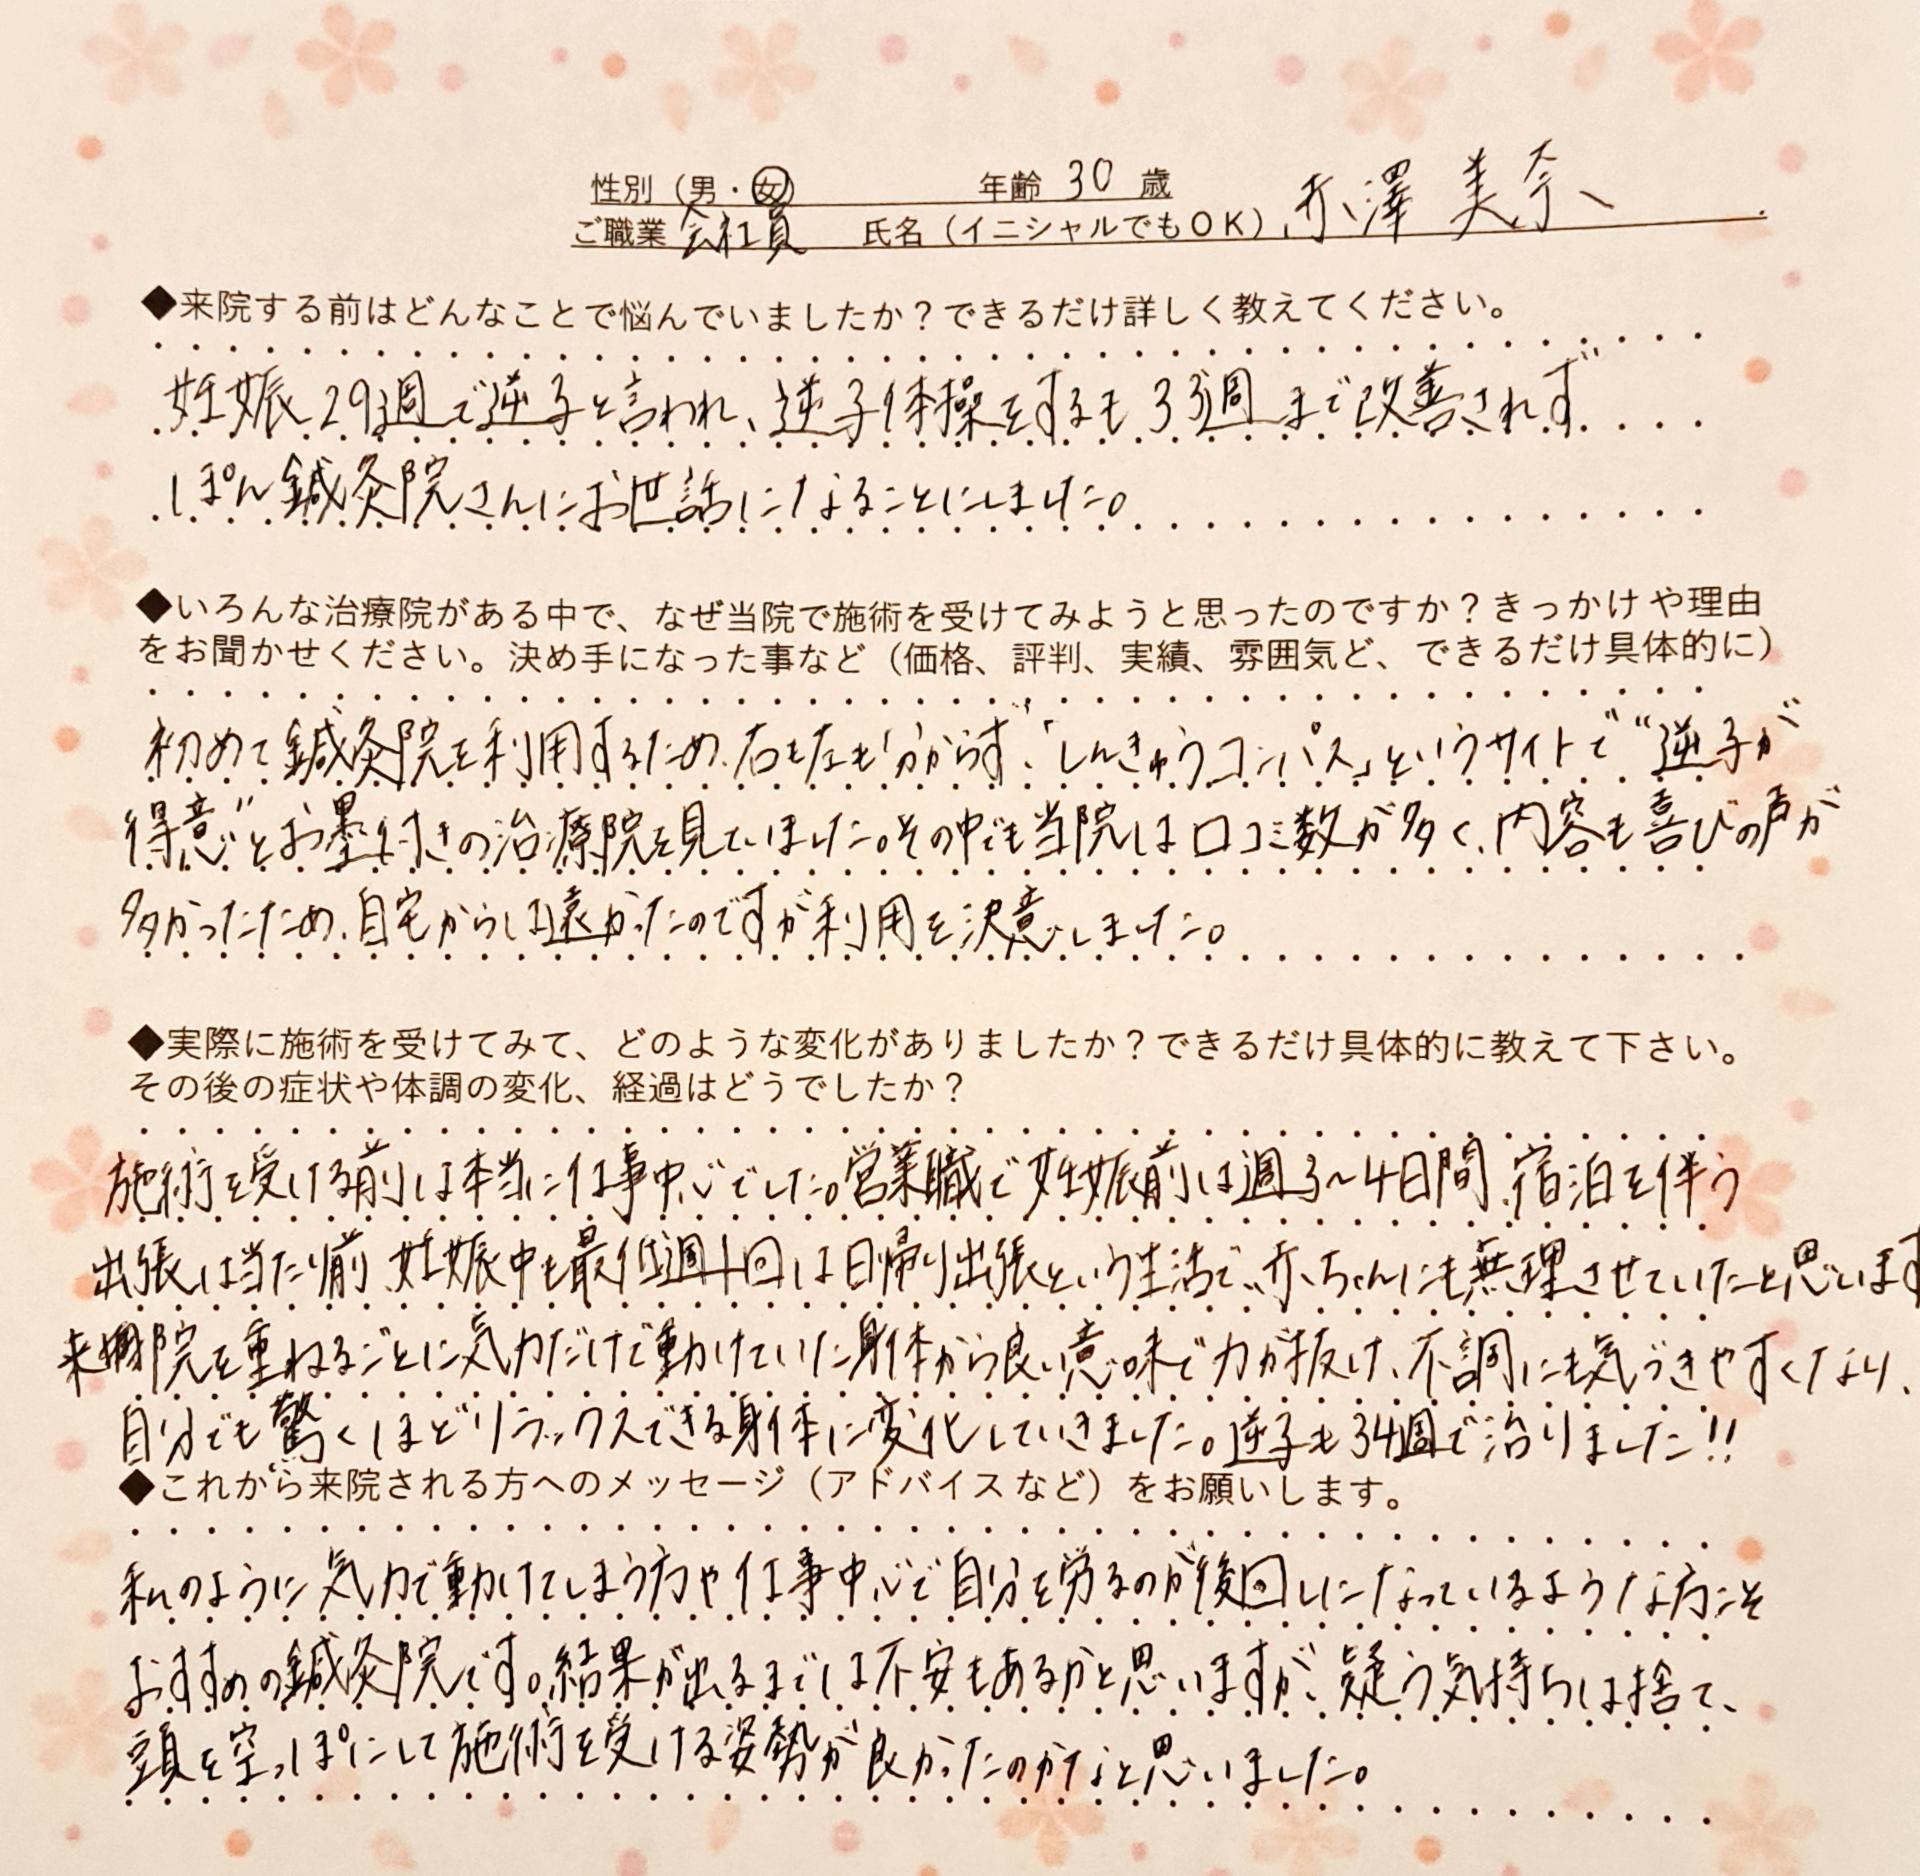 性別（男・女）　年齢 30 歳
ご職業 会社員　氏名（イニシャルでもOK）赤澤 美奈
◆来院する前はどんなことで悩んでいましたか？できるだけ詳しく教えてください。
妊娠29週で逆子と言われ、逆子体操をするも33週まで改善されず
ぽん鍼灸院さんにお世話になることにしました。
◆いろんな治療院がある中で、なぜ当院で施術を受けてみようと思ったのですか？きっかけや理由
をお聞かせください。決め手になった事など（価格、評判、実績、雰囲気ど、できるだけ具体的に）
初めて鍼灸院を利用するため、右も左も分からず、「しんきゅうコンパス」というサイトで“逆子が
得意”とお墨付きの治療院を見ていました。その中でも当院は口コミ数が多く、内容も喜びの声が
多かったため、自宅からは遠かったのですが利用を決意しました。
◆実際に施術を受けてみて、どのような変化がありましたか？できるだけ具体的に教えて下さい。
その後の症状や体調の変化、経過はどうでしたか？
施術を受ける前は本当に仕事中心でした。営業職で妊娠前は週3〜4日間、宿泊を伴う
出張は当たり前、妊娠中も最低週1回は日帰り出張という生活で、赤ちゃんにも無理させていたと思います
来院を重ねるごとに気力だけで動けていた身体から良い意味で力が抜け、不調にも気づきやすくなり、
自分でも驚くほどリラックスできる身体に変化していきました。逆子も34週で治りました!!
◆これから来院される方へのメッセージ（アドバイスなど）をお願いします。
私のように気力で動けてしまう方や仕事中心で自分を労るのが後回しになっているような方こそ
おすすめの鍼灸院です。結果が出るまでは不安もあるかと思いますが、疑う気持ちは捨て、
頭を空っぽにして施術を受ける姿勢が良かったのかなと思いました。